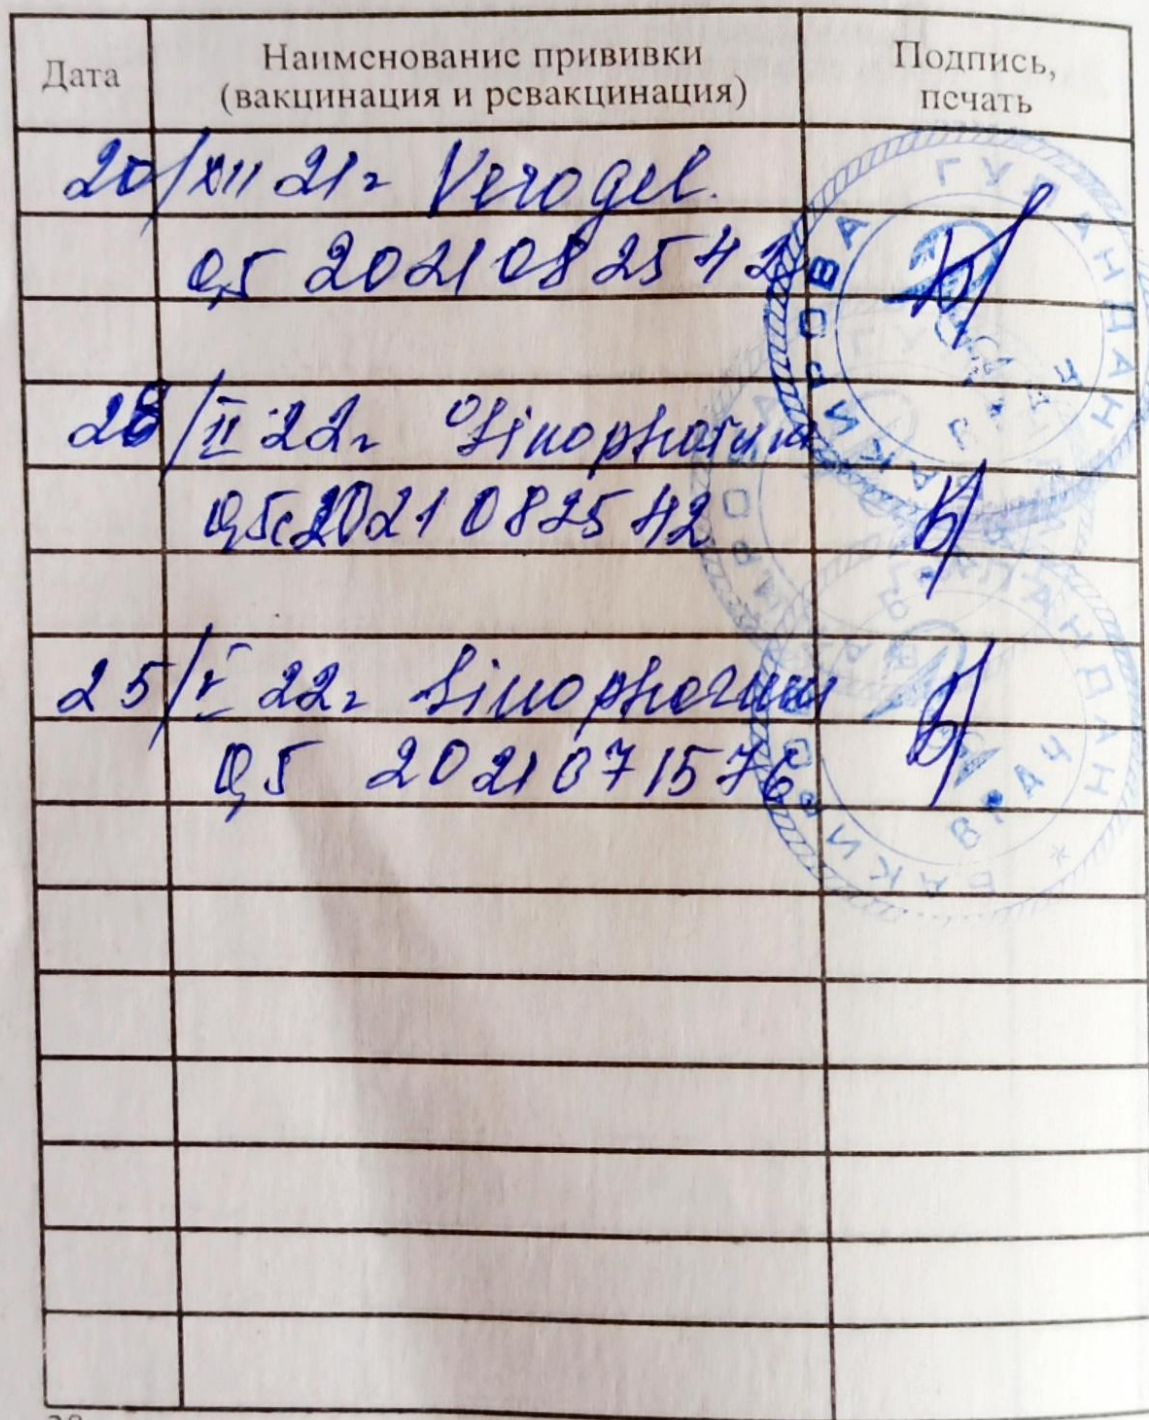 Дата
Наименование прививки
(вакцинация и ревакцинация)
Подпись,
печать
20/XII 21г Verogel.
0,5 2021082542
28/II 22г Sinopharm
0,5 2021082542
25/V 22г Sinopharm
0,5 2021071576
ГУРАНДАН
ВРАЧ